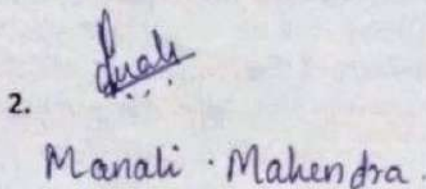 2.
Manali . Mahendra.